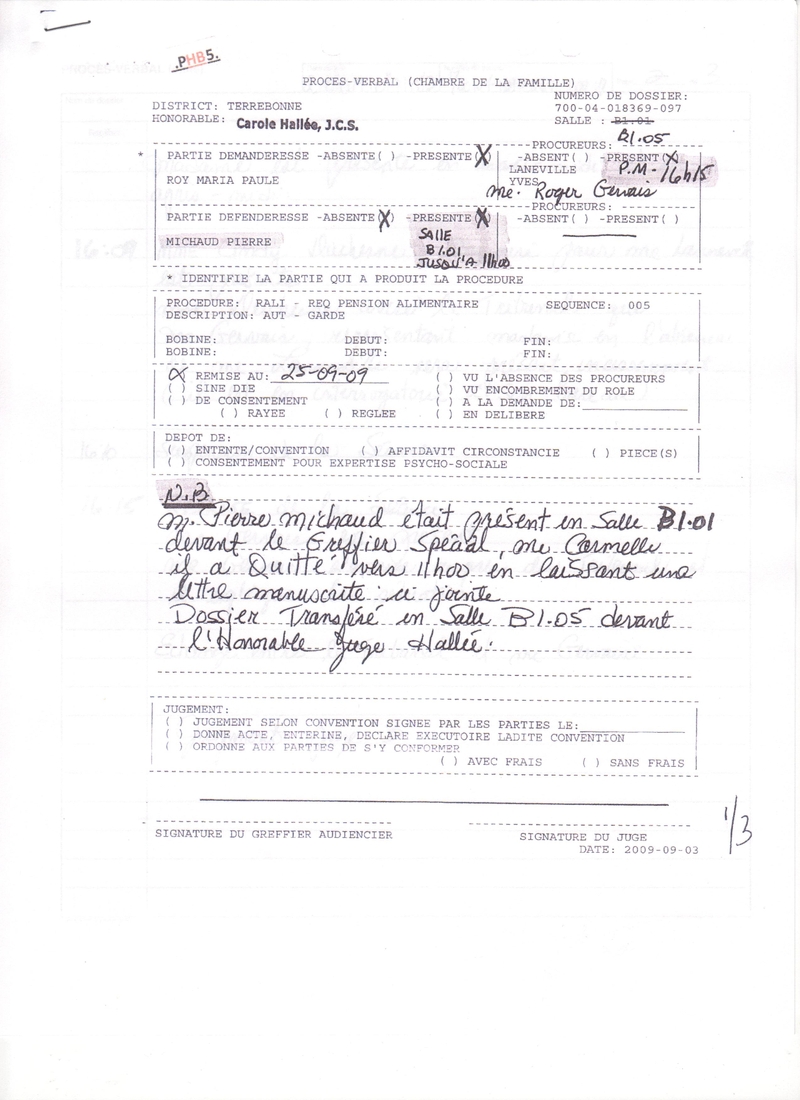 .PHB5.
PROCES-VERBAL (CHAMBRE DE LA FAMILLE)
NUMERO DE DOSSIER:
DISTRICT: TERREBONNE 700-04-018369-097
HONORABLE: Carole Hallée, J.C.S. SALLE : B1.01
B1.05
PROCUREURS:
* PARTIE DEMANDERESSE -ABSENTE( ) -PRESENTE(X) -ABSENT( ) -PRESENT(X)
LANEVILLE P.M- 16h15
ROY MARIA PAULE YVES
me. Roger Gervais
PROCUREURS:
PARTIE DEFENDERESSE -ABSENTE(X) -PRESENTE(X) -ABSENT( ) -PRESENT( )
SALLE
MICHAUD PIERRE B1.01
JUSQU'A 11h00
* IDENTIFIE LA PARTIE QUI A PRODUIT LA PROCEDURE
PROCEDURE: RALI - REQ PENSION ALIMENTAIRE SEQUENCE: 005
DESCRIPTION: AUT - GARDE
BOBINE: DEBUT: FIN:
BOBINE: DEBUT: FIN:
(X) REMISE AU: 25-09-09 ( ) VU L'ABSENCE DES PROCUREURS
( ) SINE DIE ( ) VU ENCOMBREMENT DU ROLE
( ) DE CONSENTEMENT ( ) A LA DEMANDE DE:
( ) RAYEE ( ) REGLEE ( ) EN DELIBERE
DEPOT DE:
( ) ENTENTE/CONVENTION ( ) AFFIDAVIT CIRCONSTANCIE ( ) PIECE(S)
( ) CONSENTEMENT POUR EXPERTISE PSYCHO-SOCIALE
N.B
M. Pierre Michaud était présent en Salle B1.01
devant le Greffier Spécial, me Carmelle
il a Quitté vers 11h00 en laissant une
lettre manuscrite ci jointe
Dossier Transféré en Salle B1.05 devant
l'Honorable Juge Hallée.
JUGEMENT:
( ) JUGEMENT SELON CONVENTION SIGNEE PAR LES PARTIES LE:
( ) DONNE ACTE, ENTERINE, DECLARE EXECUTOIRE LADITE CONVENTION
( ) ORDONNE AUX PARTIES DE S'Y CONFORMER
( ) AVEC FRAIS ( ) SANS FRAIS
1/3
SIGNATURE DU GREFFIER AUDIENCIER SIGNATURE DU JUGE
DATE: 2009-09-03